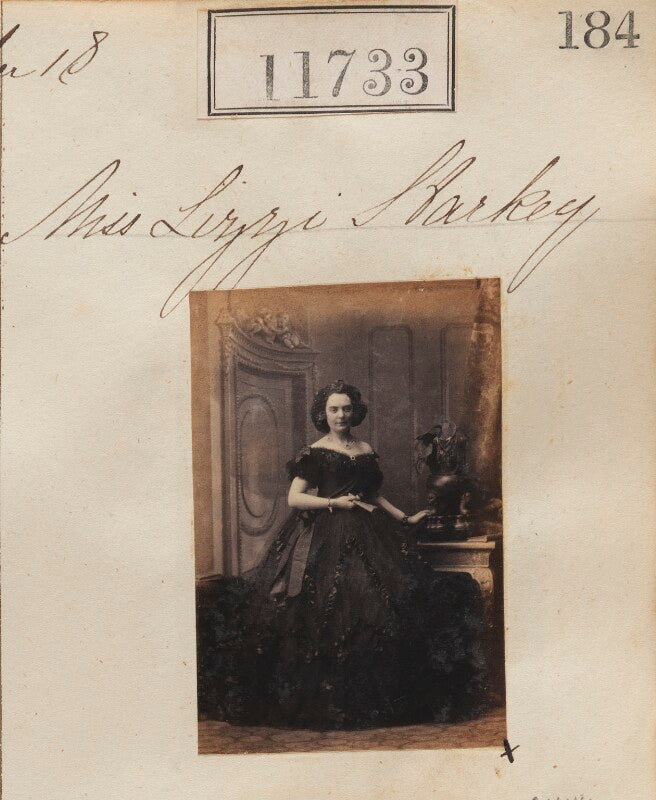 18
11733
184
Miss Lizzi Sharkey